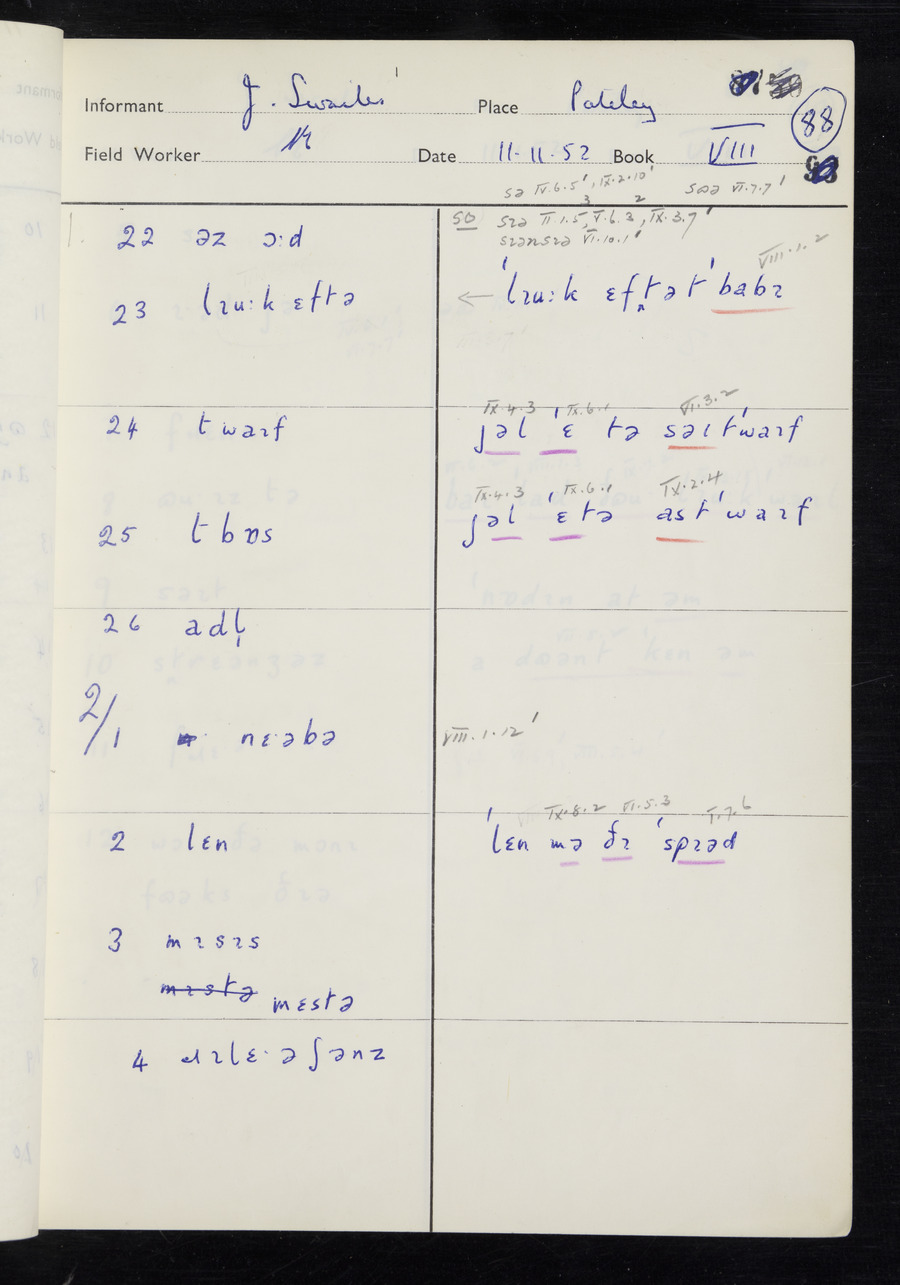 Informant J. Swailes Place Pateley
88
Field Worker Date 11·11·52 Book VIII
sə IV.6.5', IX.2.10' sɒə VI.7.7'
3 2
so sɪə II.1.5, V.6.3, IX.3.7'
sɪənsɪə VI.10.1'
22 əz ɔ:d
VIII.1.2
23 lɪu:k ɛftə
← 'lɪu:k ɛftət 'babɪ
IX.4.3 IX.6.1 VI.3.2
24 t waɪf
jəl 'ɛ tə səɪt 'waɪf
IX.4.3 IX.6.1 IX.2.4
25 t bɒs
jəl 'ɛ tə ast 'waɪf
26 adl̩
2/1 nɛ·əbə
VIII.1.12'
IX.8.2 VI.5.3 I.7.6
2 lɛn
'lɛn mə ðɪ 'spɪəd
3 mɪsɪs
mɪstə mɛstə
4 ɹɪlɛ·əʃənz